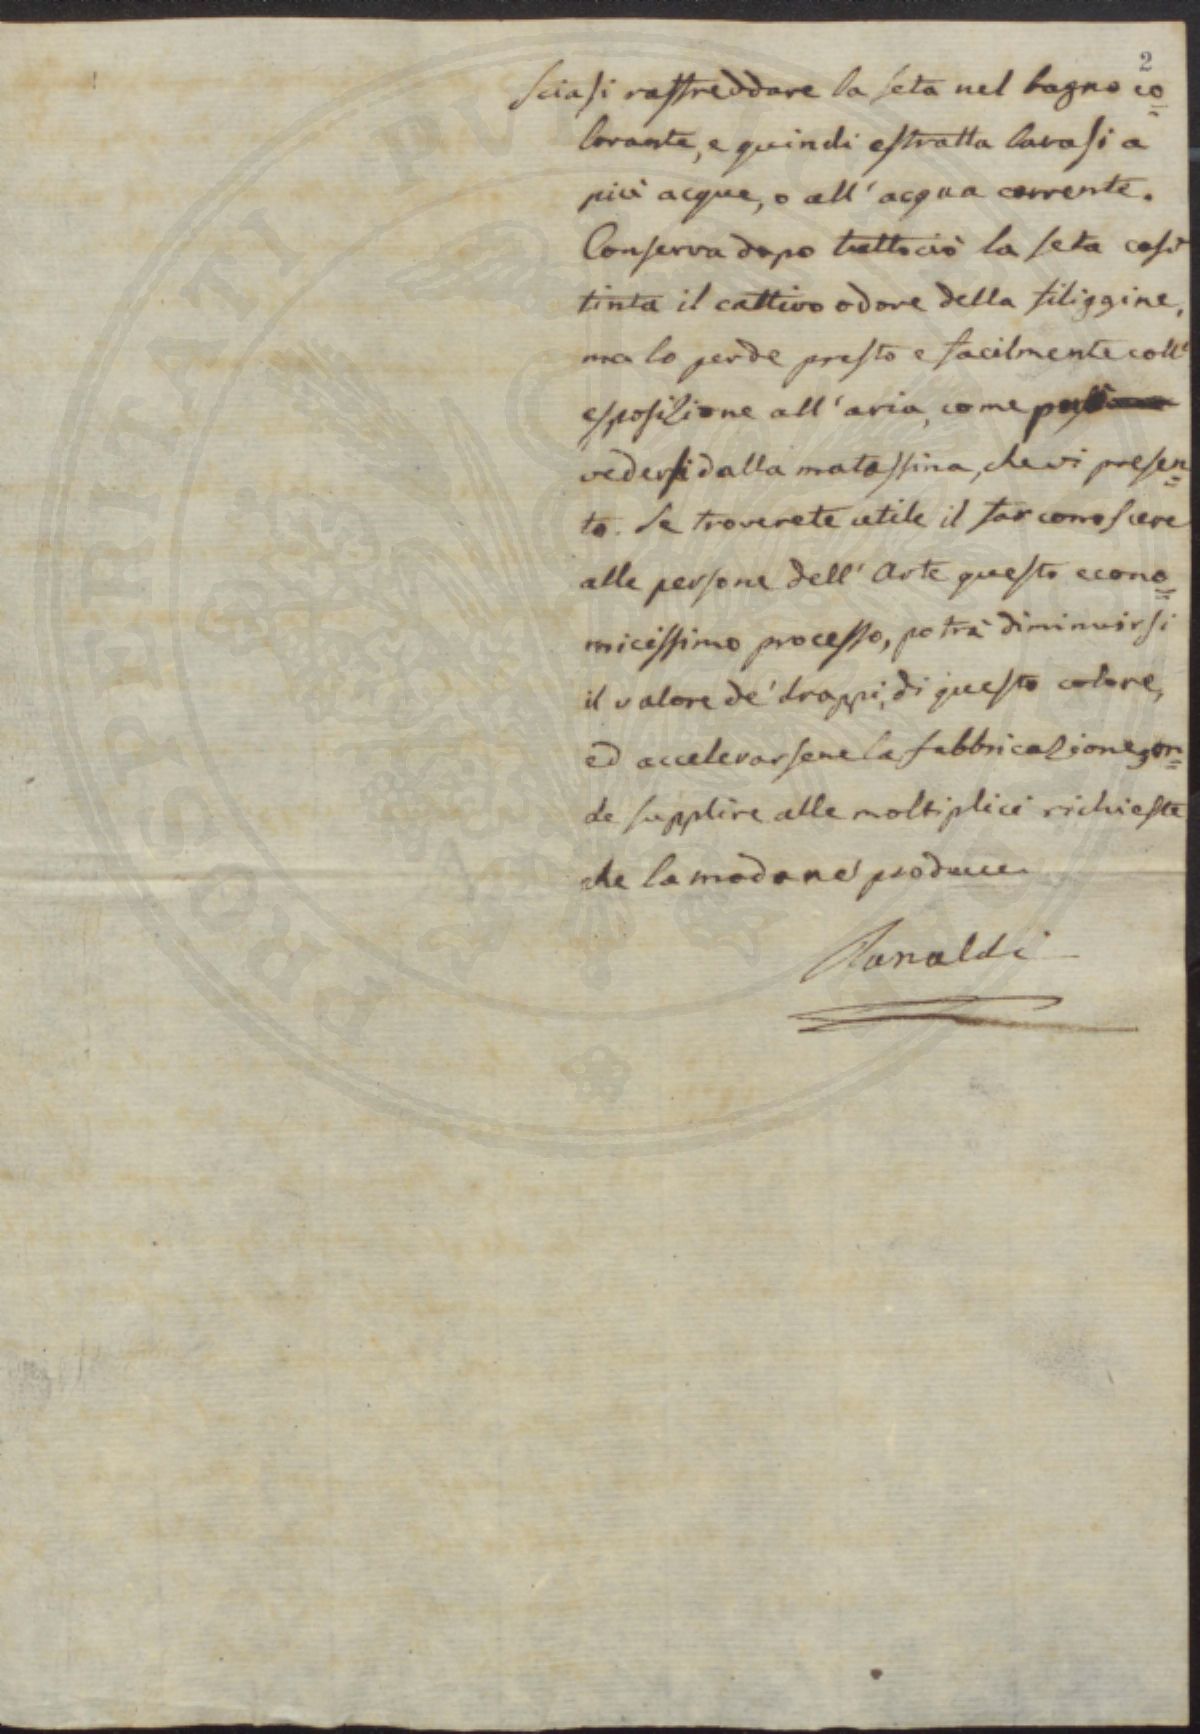 2
sciasi raffreddare la seta nel bagno co=
lorante, e quindi estratta lavasi a
più acque, o all' acqua corrente.
Conserva dopo tuttociò la seta così
tinta il cattivo odore della filiggine,
ma lo perde presto e facilmente coll'
esposizione all' aria, come
vedersi dalla matassina, che vi presen=
to. Se troverete utile il far conoscere
alle persone dell' Arte questo econo=
micissimo processo, potrà diminuirsi
il valore de' drappi, di questo colore,
ed accelerarsene la fabbricazione, on=
de supplire alle moltiplici richieste
che la moda ne produce.
Ranaldi
PROSPERITATI